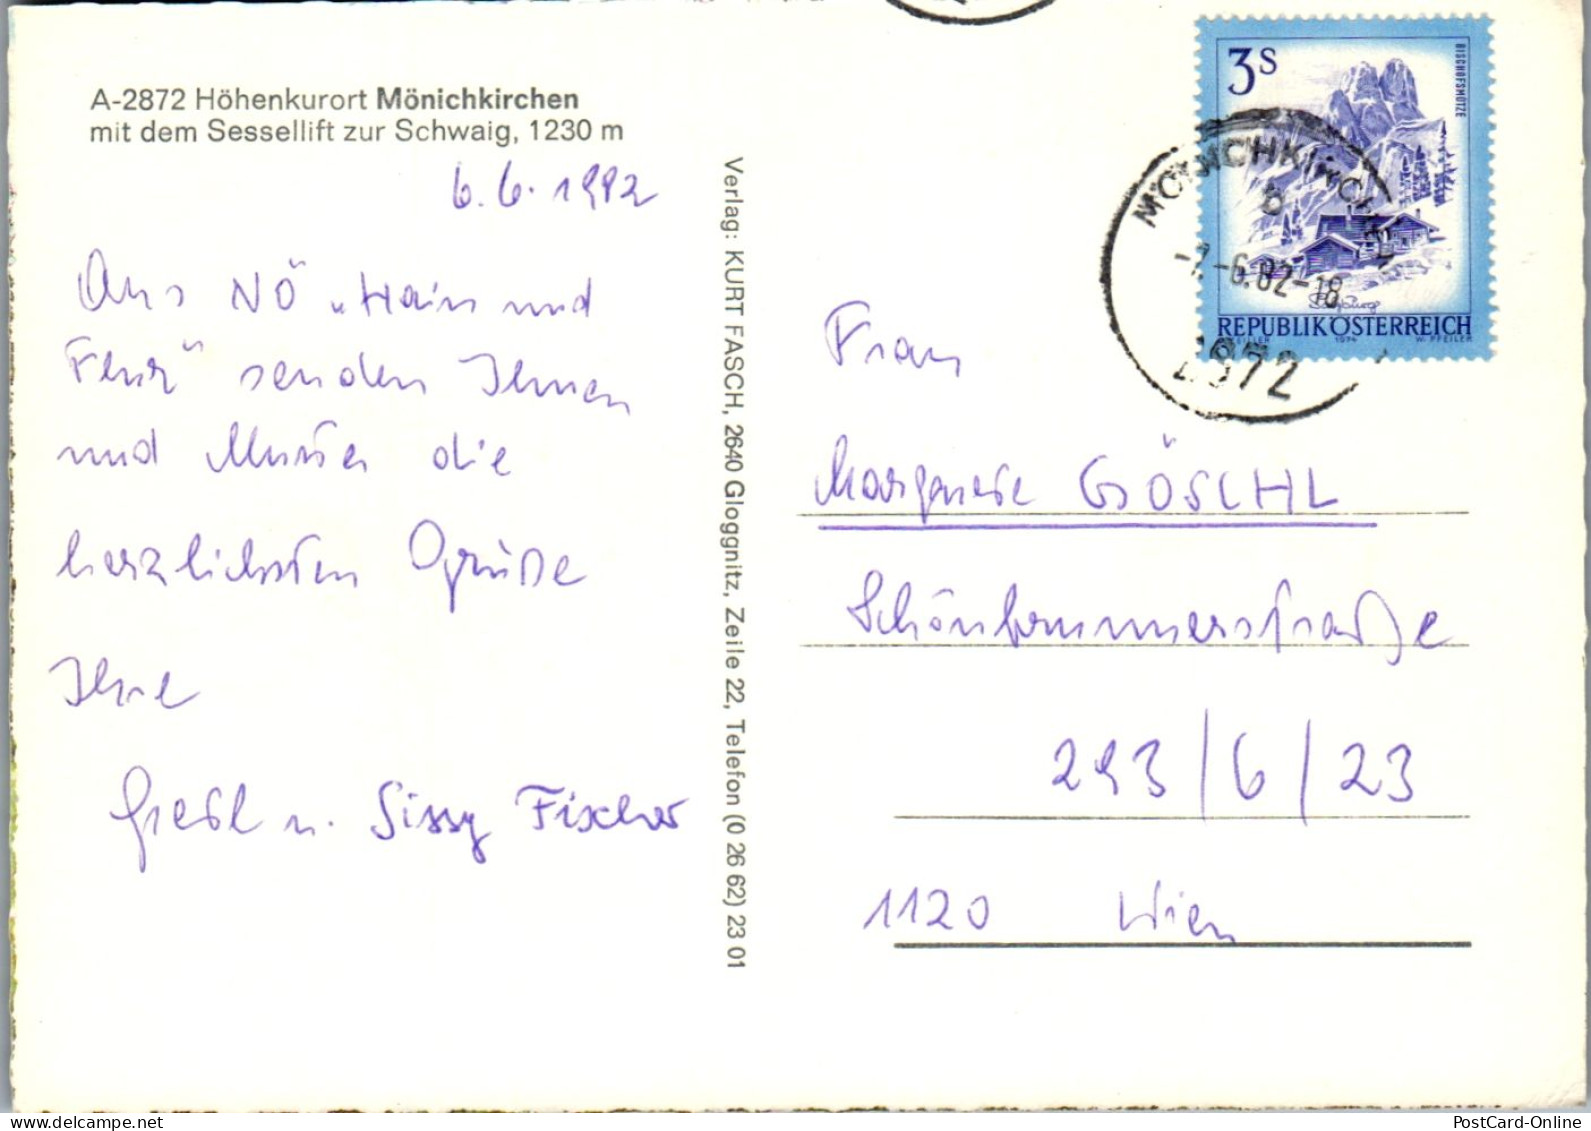 A-2872 Höhenkurort Mönichkirchen
mit dem Sessellift zur Schwaig, 1230 m
6.6.1982
Aus NÖ „Hain und
Flur" senden Ihnen
und Mutter die
herzlichsten Grüße
Ihre
Gretl u. Sissy Fischer
Verlag: KURT FASCH, 2640 Gloggnitz, Zeile 22, Telefon (0 26 62) 23 01
3S
BISCHOFSMÜTZE
Salzburg
REPUBLIK ÖSTERREICH
1974
W. PFEILER
MÖNICHKIRCHEN
b
-7.-6.82-18
2872
Frau
Margarete GÖSCHL
Schönbrunnerstraße
293/6/23
1120 Wien
PostCard-Online